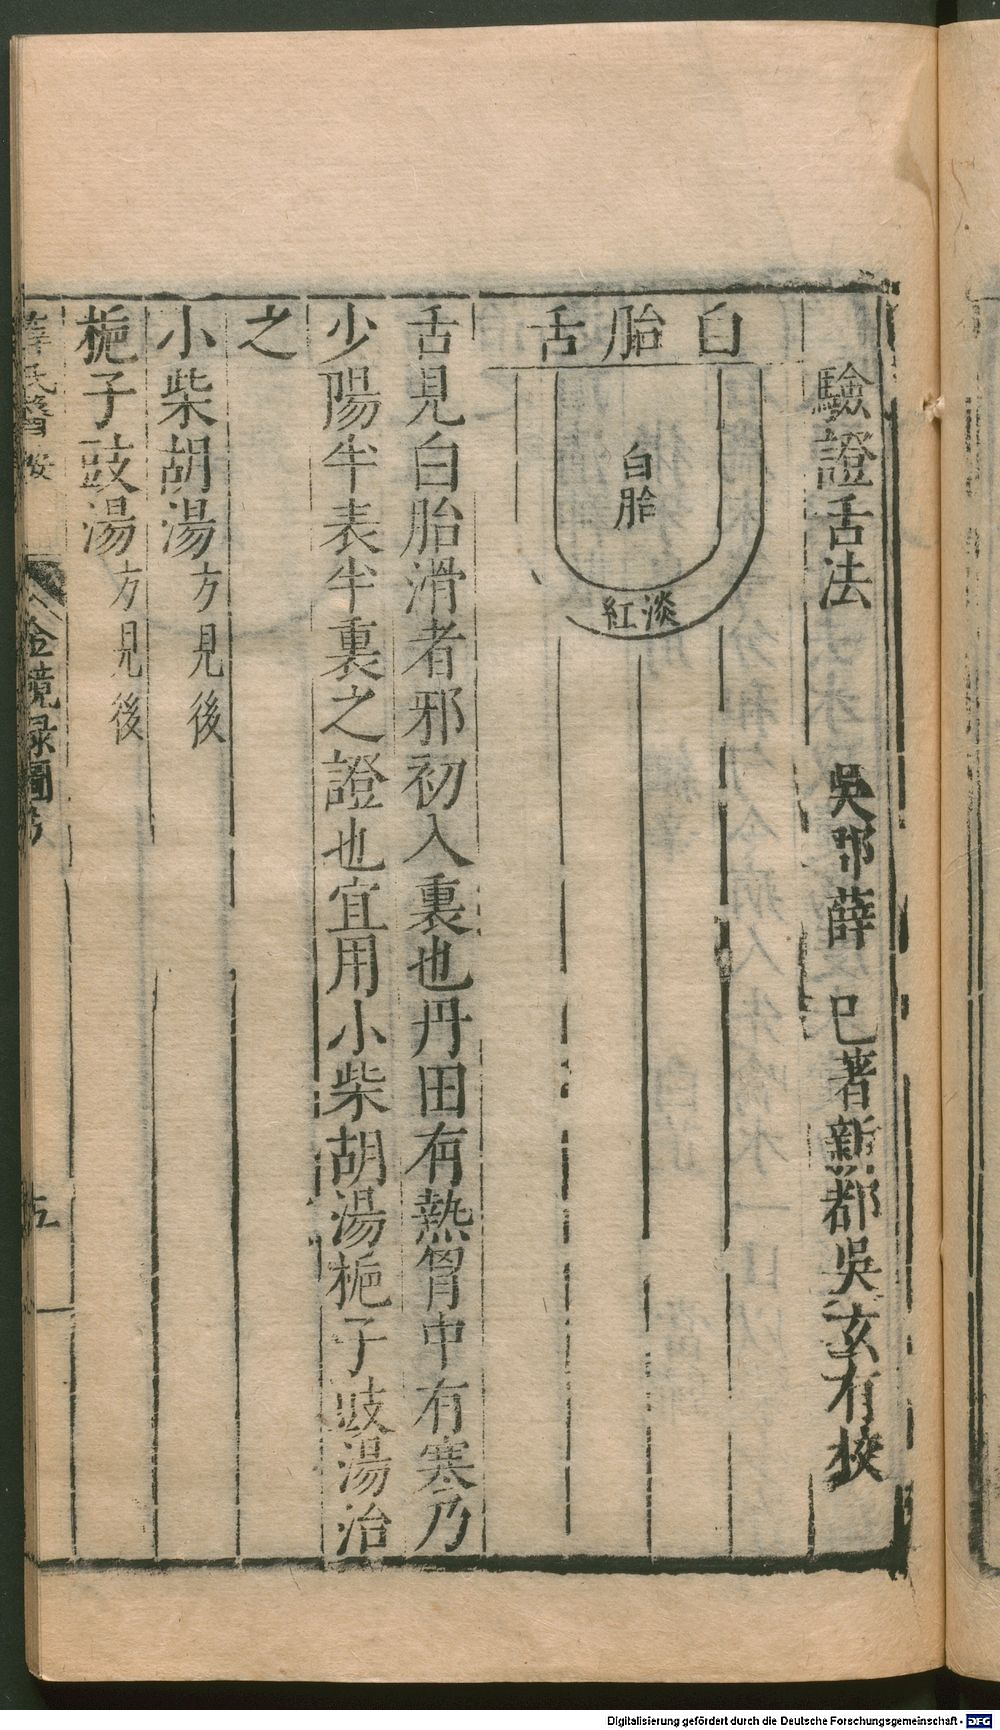 驗證舌法 吳郡薛 已著新都吳玄有挍
白胎舌
白胎
淡紅
舌見白胎滑者邪初入裏也丹田有熱胷中有寒乃
少陽半表半裏之證也宜用小柴胡湯梔子豉湯治
之
小柴胡湯方見後
梔子豉湯方見後
薛氏醫按
金鏡録圖
五
Digitalisierung gefördert durch die Deutsche Forschungsgemeinschaft - DFG